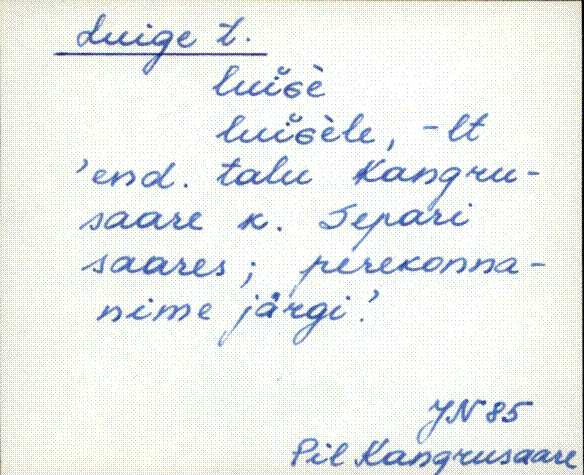 Luige t.
luiɢè
luiɢèle, -lt
'end. talu Kangru-
saare k. Separi
saares; perekonna-
nime järgi.'
JN 85
Pil Kangrusaare